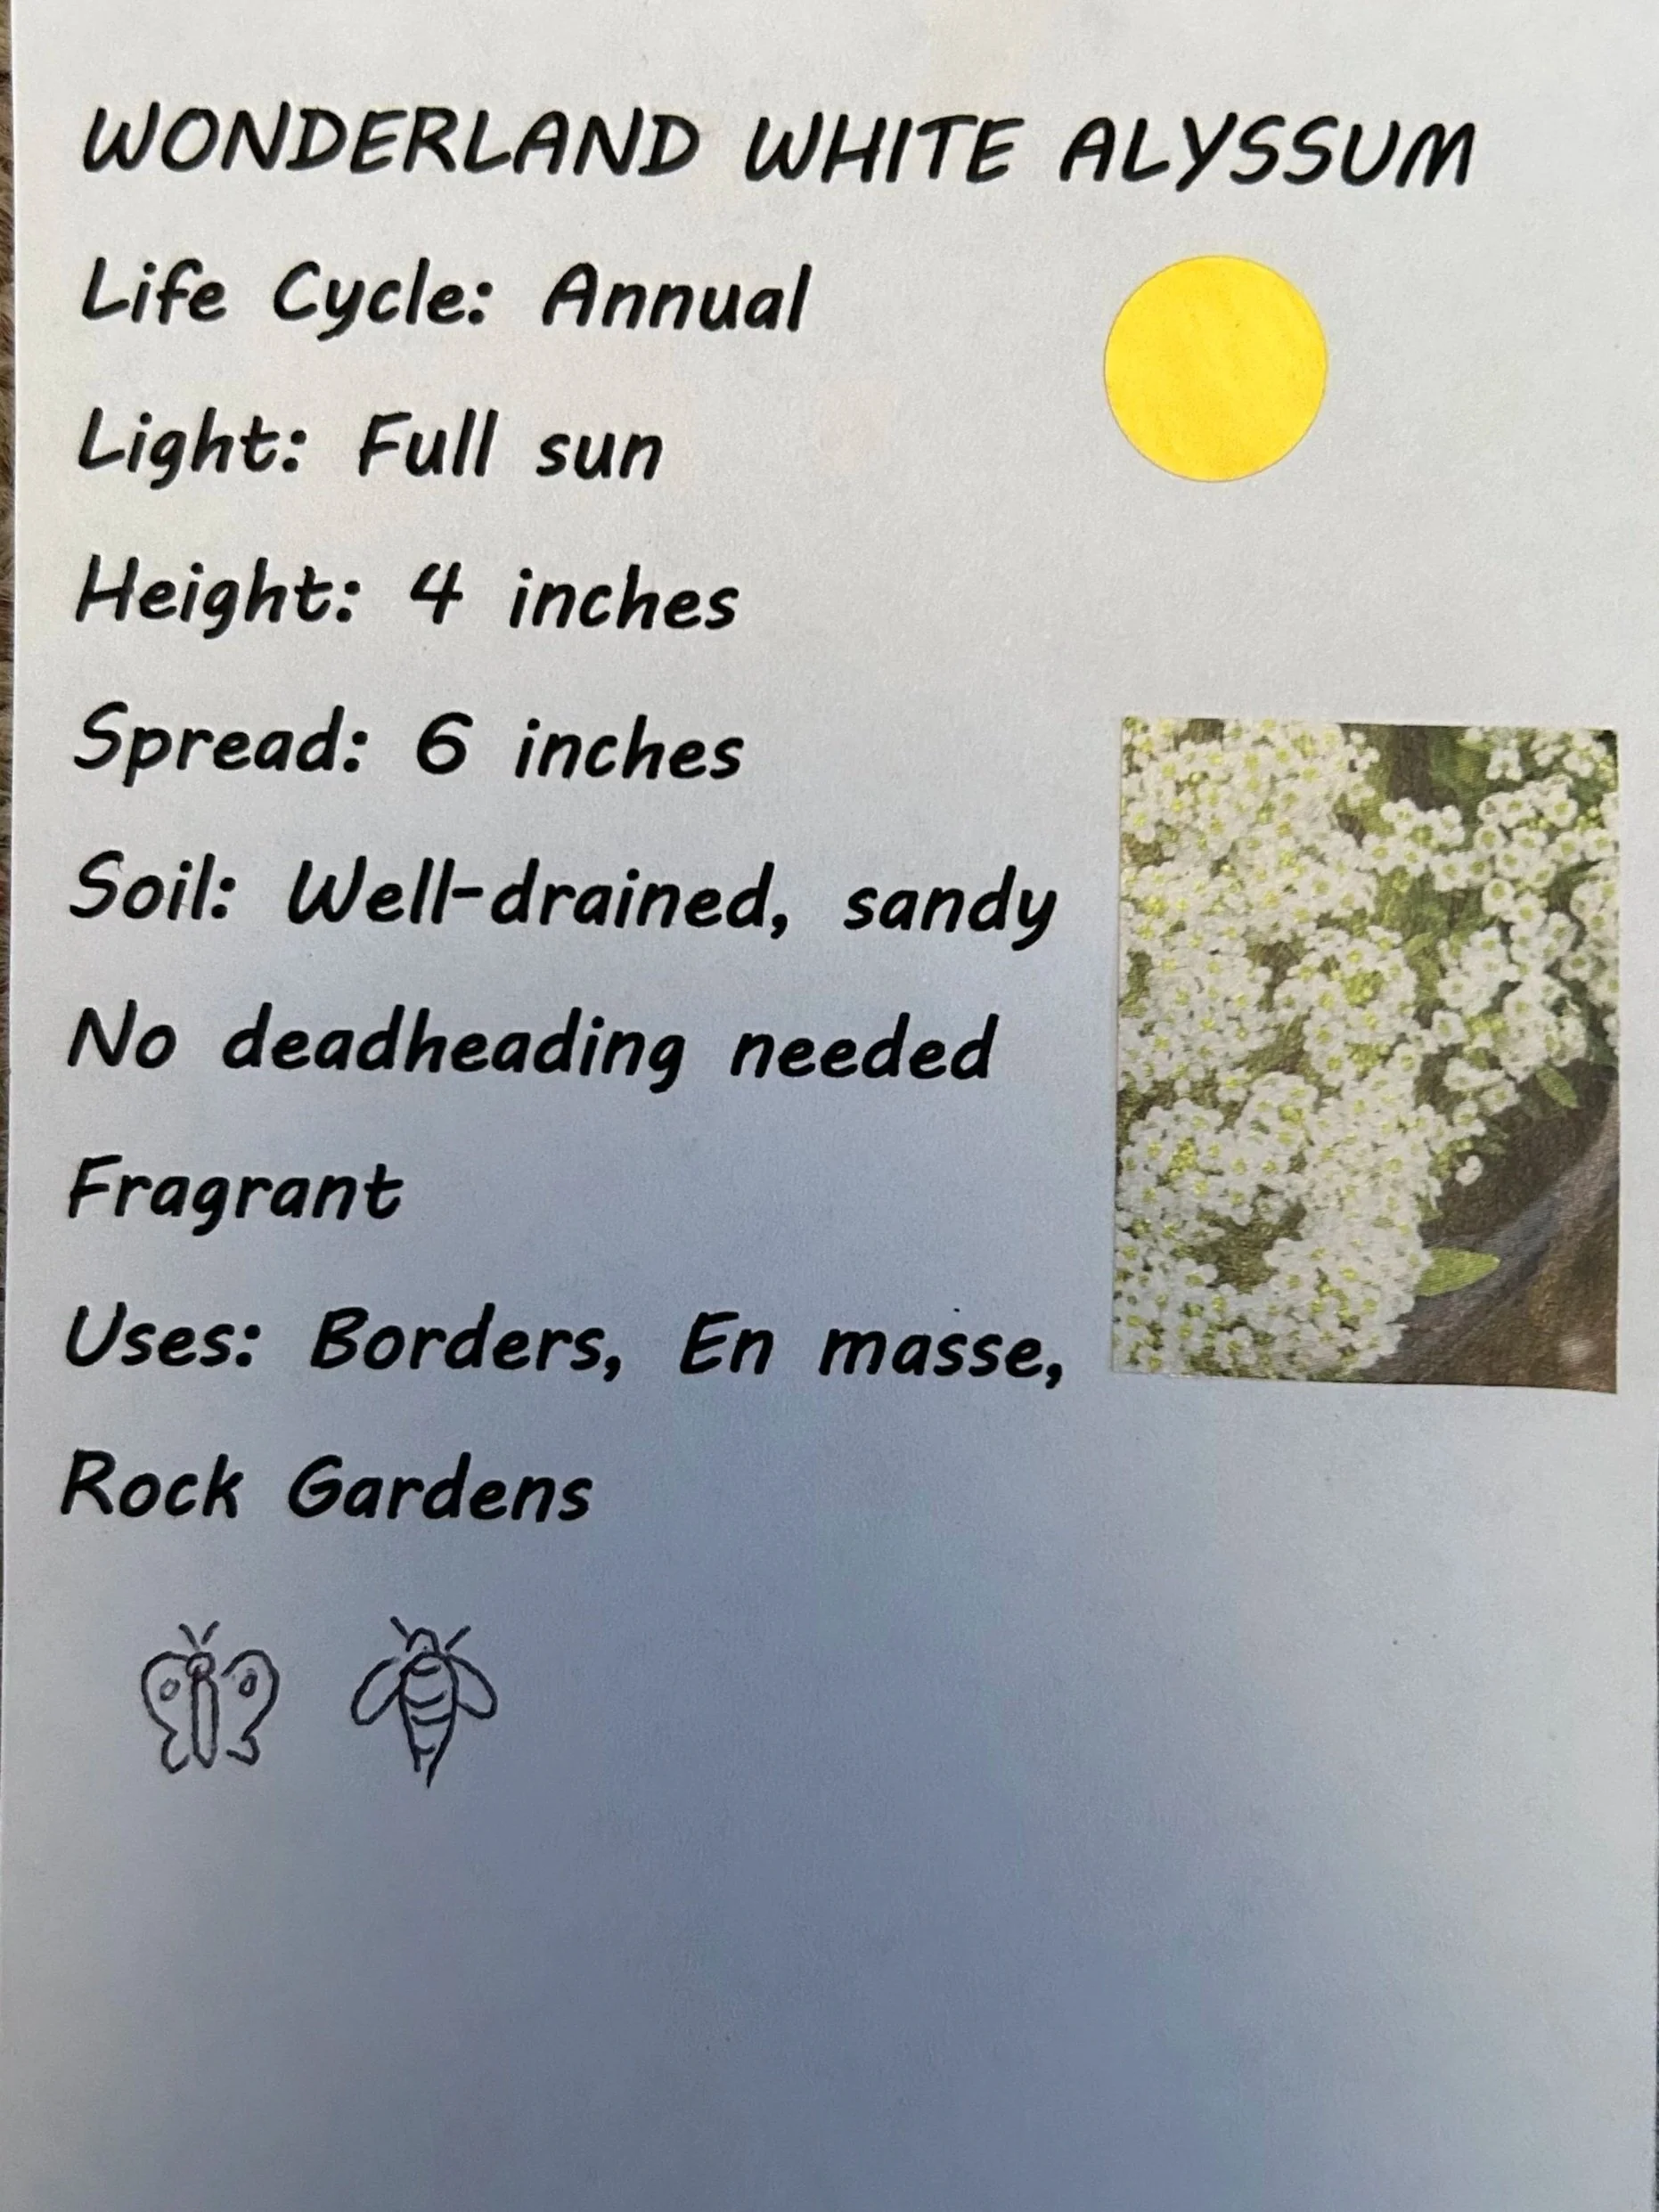 WONDERLAND WHITE ALYSSUM
Life Cycle: Annual
Light: Full sun
Height: 4 inches
Spread: 6 inches
Soil: Well-drained, sandy
No deadheading needed
Fragrant
Uses: Borders, En masse,
Rock Gardens